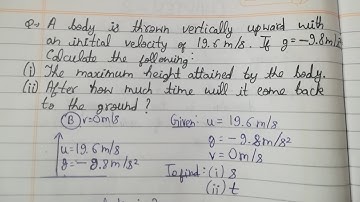 Q→ A body is thrown vertically upward with
an initial velocity of 19.6 m/s. If g = -9.8 m/s²
Calculate the following:
(i) The maximum height attained by the body.
(ii) After how much time will it come back
to the ground?
(B) v=0m/s
u=19.6m/s
g=-9.8m/s²
Given: u = 19.6m/s
g = -9.8m/s²
v = 0m/s
To find: (i) s
(ii) t